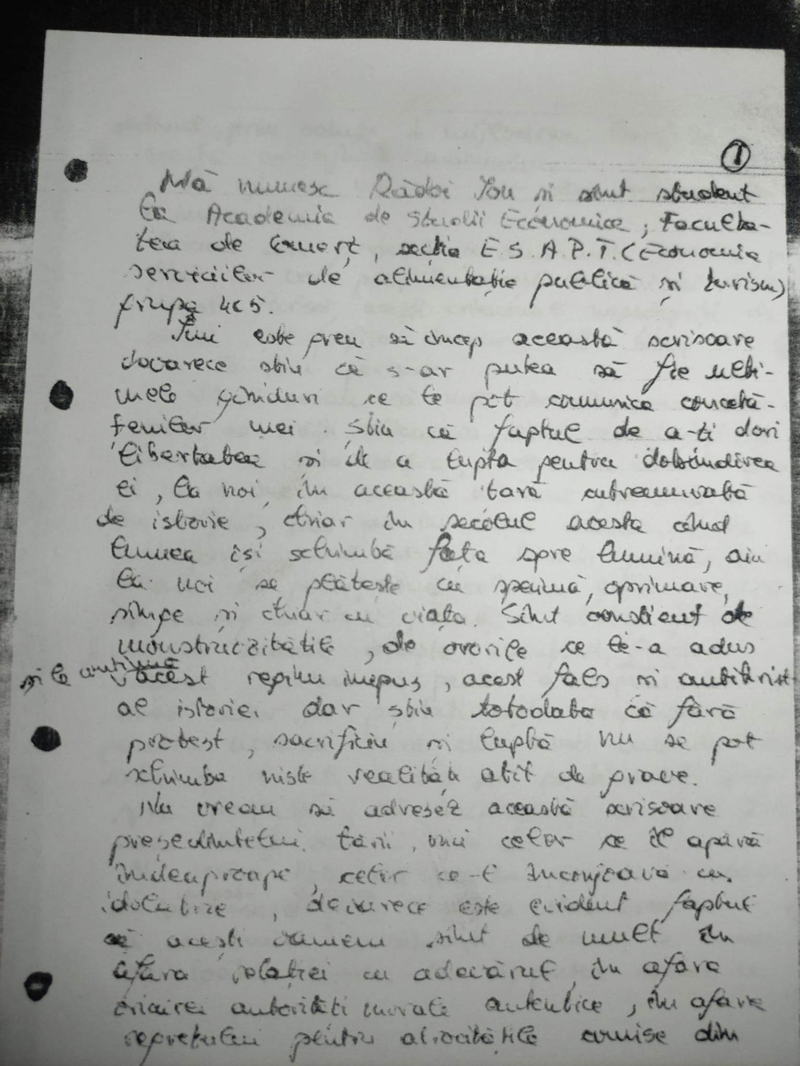 1
Mă numesc Rădoi Ion și sînt student
la Academia de Studii Economice, Faculta-
tea de Comerț, secția E.S.A.P.T. (Economia
serviciilor de alimentație publică și turism)
grupa 465.
Îmi este greu să încep această scrisoare
deoarece știu că s-ar putea să fie ulti-
mele gînduri ce le pot comunica concetă-
țenilor mei. Știu că faptul de a-ți dori
libertatea și de a lupta pentru dobîndirea
ei, la noi, în această țară cutremurată
de istorie, chiar în secolul acesta cînd
lumea își schimbă fața spre lumină, aici
la noi se plătește cu spaimă, oprimare,
sînge și chiar cu viața. Sînt conștient de
monstruozitățile, de ororile ce le-a adus
și le continuă acest regim impus, acest fals și antihrist
al istoriei dar știu totodată că fără
protest, sacrificiu și luptă nu se pot
schimba niște realități atît de grave.
Nu vreau să adresez această scrisoare
președintelui țării, nici celor ce îl apără
îndeaproape, celor ce-l înconjoară cu
idolatrie, deoarece este evident faptul
că acești oameni sînt de mult în
afara relației cu adevărul, în afara
oricărei autorități morale autentice, în afara
regretului pentru atrocitățile comise din